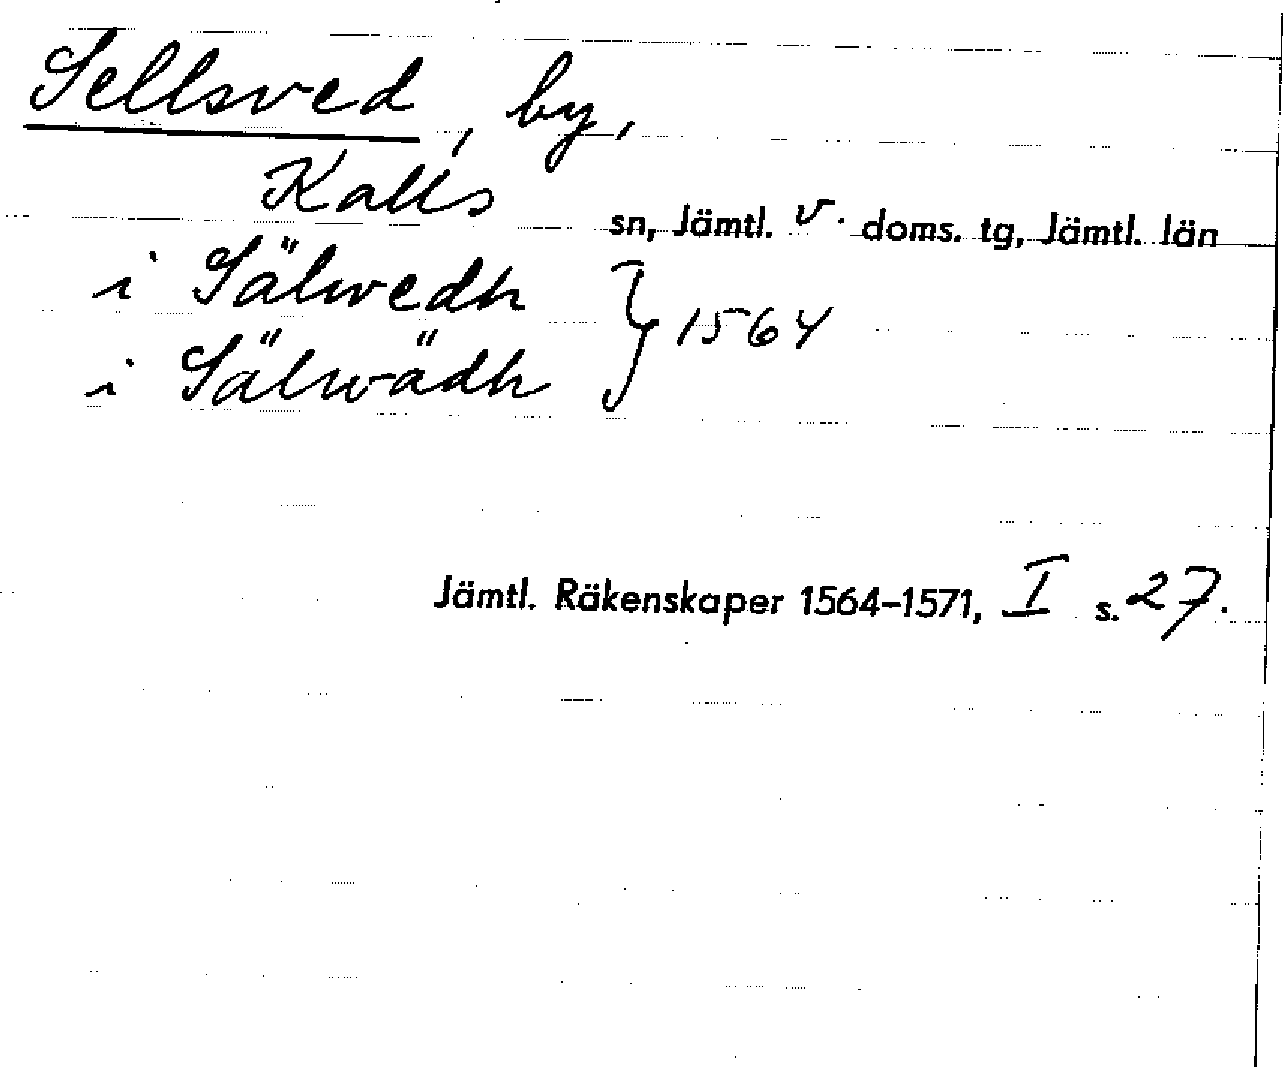 Sellsved, by,
Kalls sn, Jämtl. v. doms. tg, Jämtl. län
i Sälwedh
i Sälwädh } 1564
Jämtl. Räkenskaper 1564–1571, I s. 27.